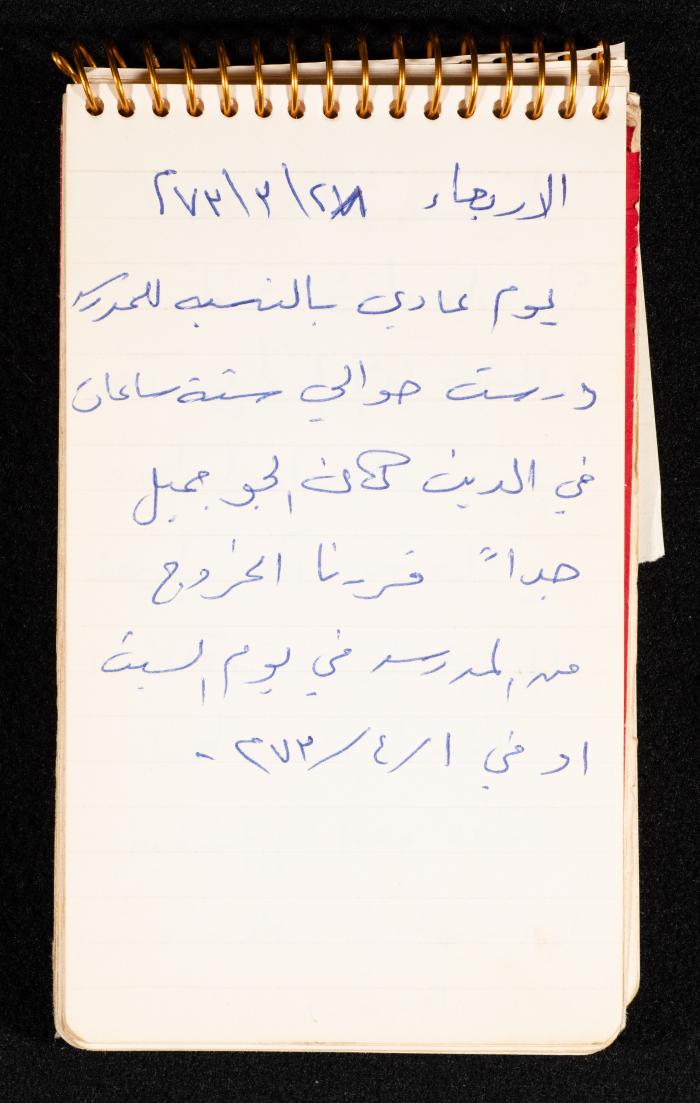 الاربعاء ٢٨\٣\٢٧٣
يوم عادي بالنسبه للمدرسه
درست حوالي ستة ساعات
في الدين كان الجو جميل
جداً قررنا الخروج
من المدرسه في يوم السبت
او في ١/٤/٢٧٣ -